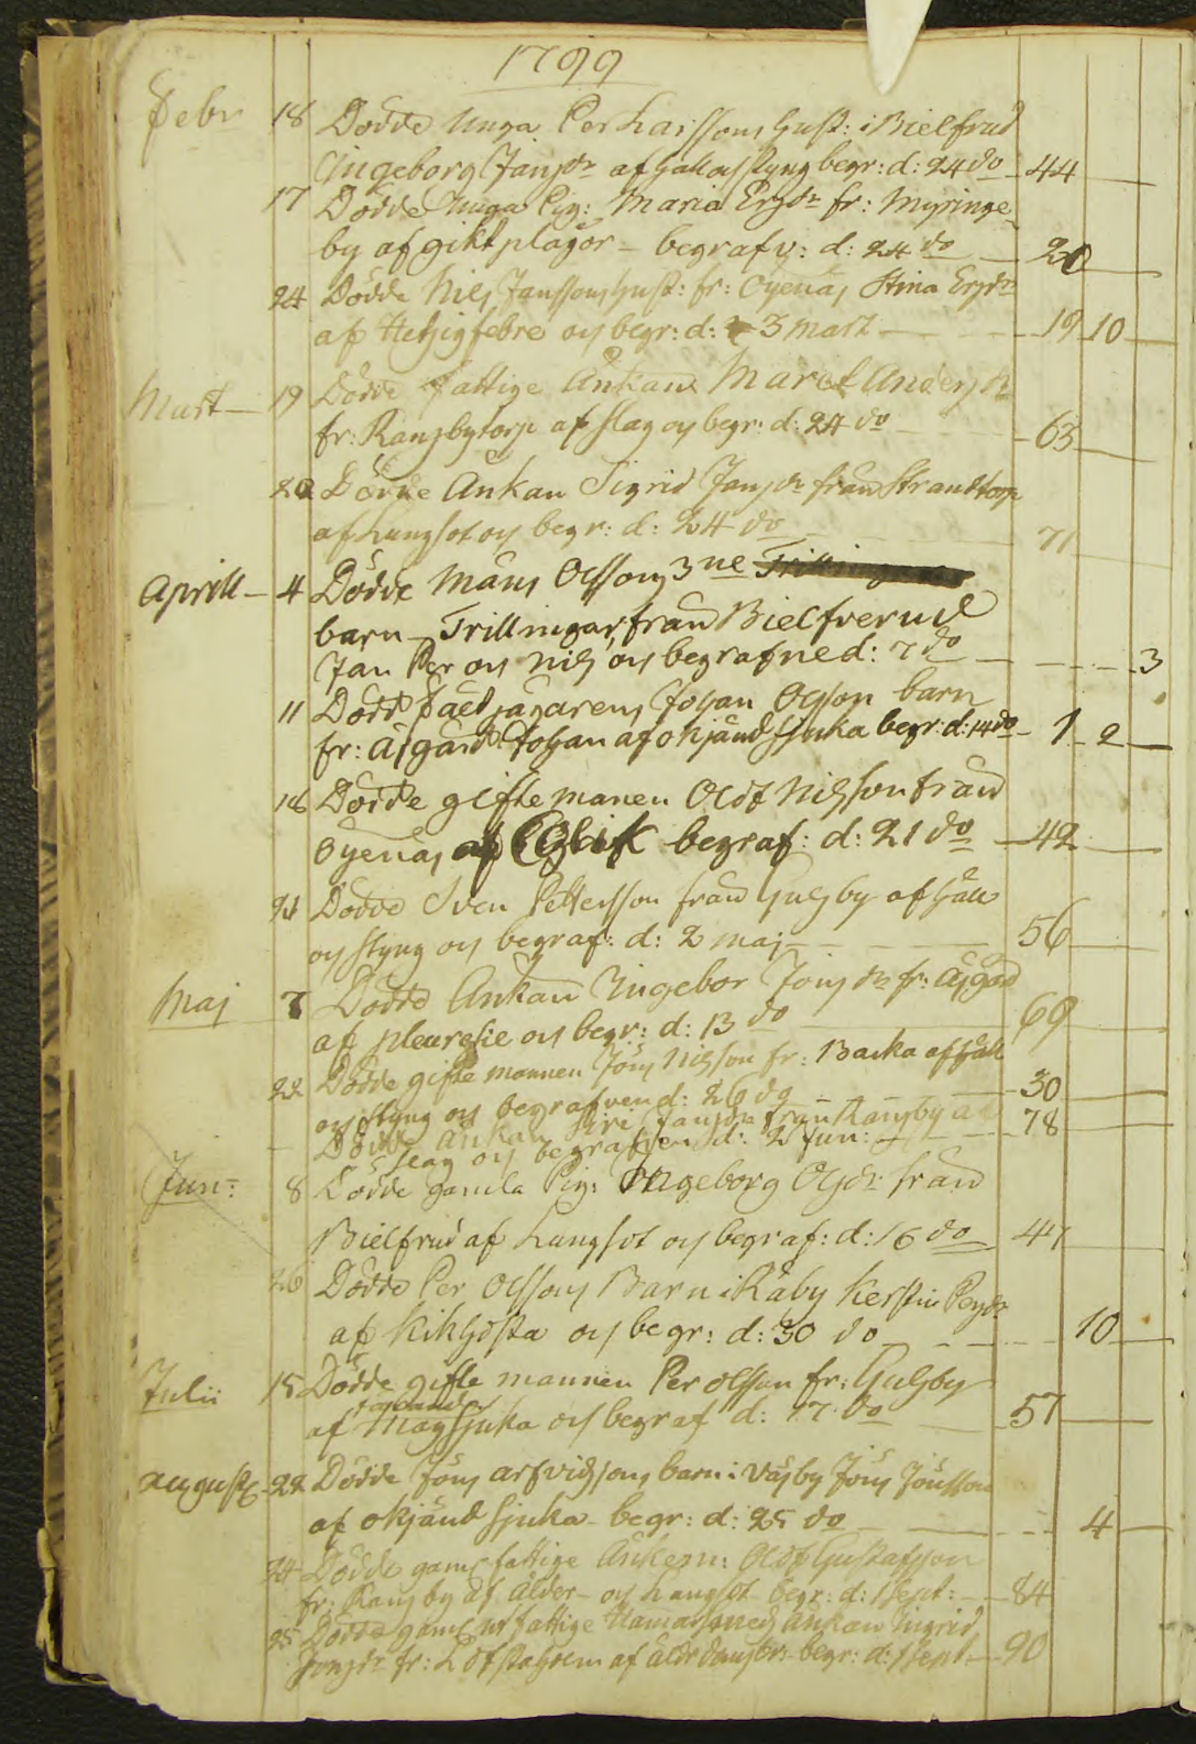 1799
Febr 18 Dödde unga Per Larssons hust: i Bielfrud
Ingeborg Jansdr af håll och styng begr: d: 24 do 44
17 Dödde unga Pig: Maria Ersdr fr: Myringe-
by af giktplågor - begrafv: d: 24 do 20
24 Dödde Nils Janssons hust: fr: Öyenäs Stina Ersdr
af Hetsigfebre och begr: d: 3 Mart 19 10
Mart 19 Dödde fattige Änkan Maret Andersdr
fr: Ransbytorp af slag och begr: d: 24 do 63
20 Dödde Änkan Sigrid Jansdr från Strandtorp
af Lungsot och begr: d: 24 do 71
Aprill 4 Dödde Måns Olssons 3ne
barn Trillingar, från Bielfverud
Jan Per och Nils och begrafne d: 7 do 3
11 Dödd Johan Olsson barn
fr: Åsgård Johan af okjänd sjuka begr: d: 14 do 1 2
18 Dödde gifte manen Olof Nilsson från
Öyenäs af begraf: d: 21 do 42
24 Dödde Sven Pettersson från Gulsby af håll
och styng och begraf: d: 2 maj 56
Maj 7 Dödde Änkan Ingebor Jonsdr fr: Åsgård
af pleuresie och begr: d: 13 do 69
22 Dödde gifte mannen Jöns Nilsson fr: Backa af håll
och styng och begrafven d: 26 do 30
Dödde Änkan Siri Jansdr från Ransby af
slag och begrafven d: 2 Jun: 78
Jun: 8 Dödde gamla Pig: Ingeborg Olsdr från
Bielfrud af Lungsot och begraf: d: 16 do 41
26 Dödde Per Olssons Barn i Råby Kerstin Persdr
af Kikhosta och begr: d: 30 do 10
Julii 15 Dödde gifte mannen Per Olsson fr: Gulsby
af Magsjuka och begraf d: 17 do 57
Augusti 22 Dödde Jöns Arfvidssons barn i Väsby Jöns Jönsson
af okjänd sjuka begr: d: 25 do 4
24 Dödde gaml fattige Änkem: Olof Gustafsson
fr: Ransby af ålder och Lungsot begr: d: 1 Sept: 84
25 Dödde gaml fattige Änkan Ingrid
Jonsdr fr: Löfstaholm af begr: d: 1 Sept 90